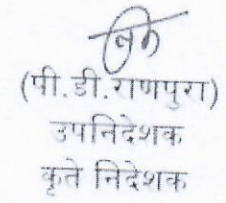 (पी.डी.राणपुरा)
उपनिदेशक
कृते निदेशक